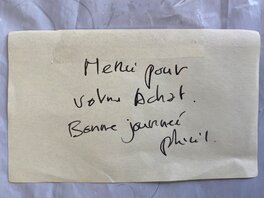 Merci pour
votre Achat.
Bonne journeé